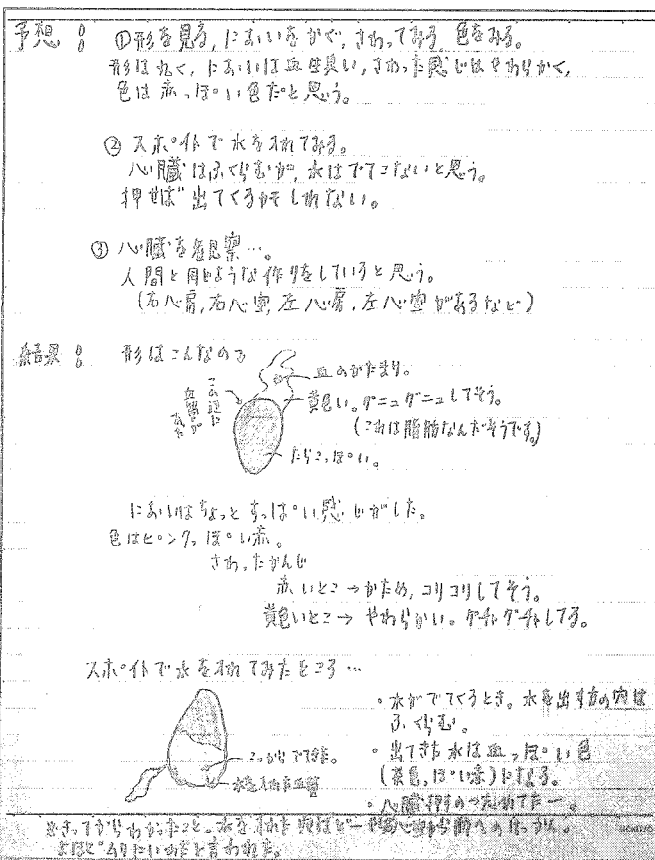 予想：①形を見る,においをかぐ,さわってみる,色をみる。
形は丸く,においは血生臭い,さわった感じはやわらかく,
色は赤っぽい色だと思う。
② スポイトで水を入れてみる。
心臓はふくらむが,水はでてこないと思う。
押せば出てくるかもしれない。
③ 心臓を観察…。
人間と同じような作りをしていると思う。
(右心房,右心室,左心房,左心室があるなど)
結果：形はこんなの
血のかたまり。
この辺に
血管が
黄色い。グニュグニュしてそう。
(これは脂肪なんだそうです。)
たらこっぽい。
においはちょっとすっぱい感じがした。
色はピンクっぽい赤。
さわったかんじ
赤いとこ→かため,コリコリしてそう。
黄色いとこ→やわらかい。グチャグチャしてる。
スポイトで水を入れてみたところ…
・水がでてくるとき。水を出す方の
ふくらむ。
・出てきた水は血っぽい色
(茶色っぽい赤)になる。
こっからでてきた。
水を入れた血管
・心臓押すの
あきってからわかったこと。水を入れた
と言われた。